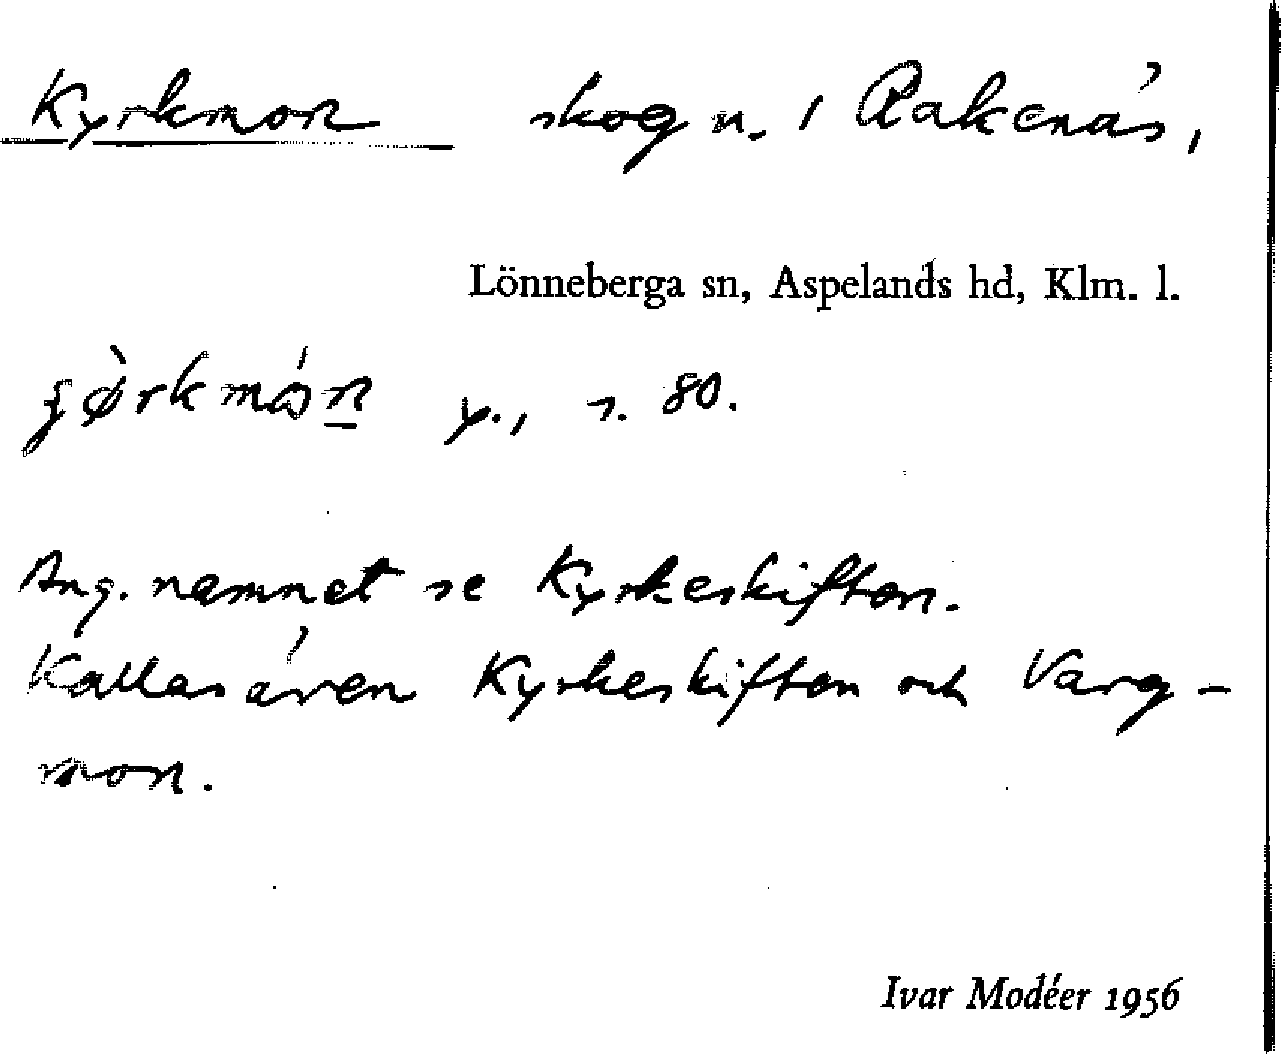 Kyrkmon skog n. i Rakenäs,
Lönneberga sn, Aspelands hd, Klm. l.
y., s. 80.
Ang. namnet se Kyrkeskiften.
Kallas även Kyrkeskiften och Varg-
mon.
Ivar Modéer 1956